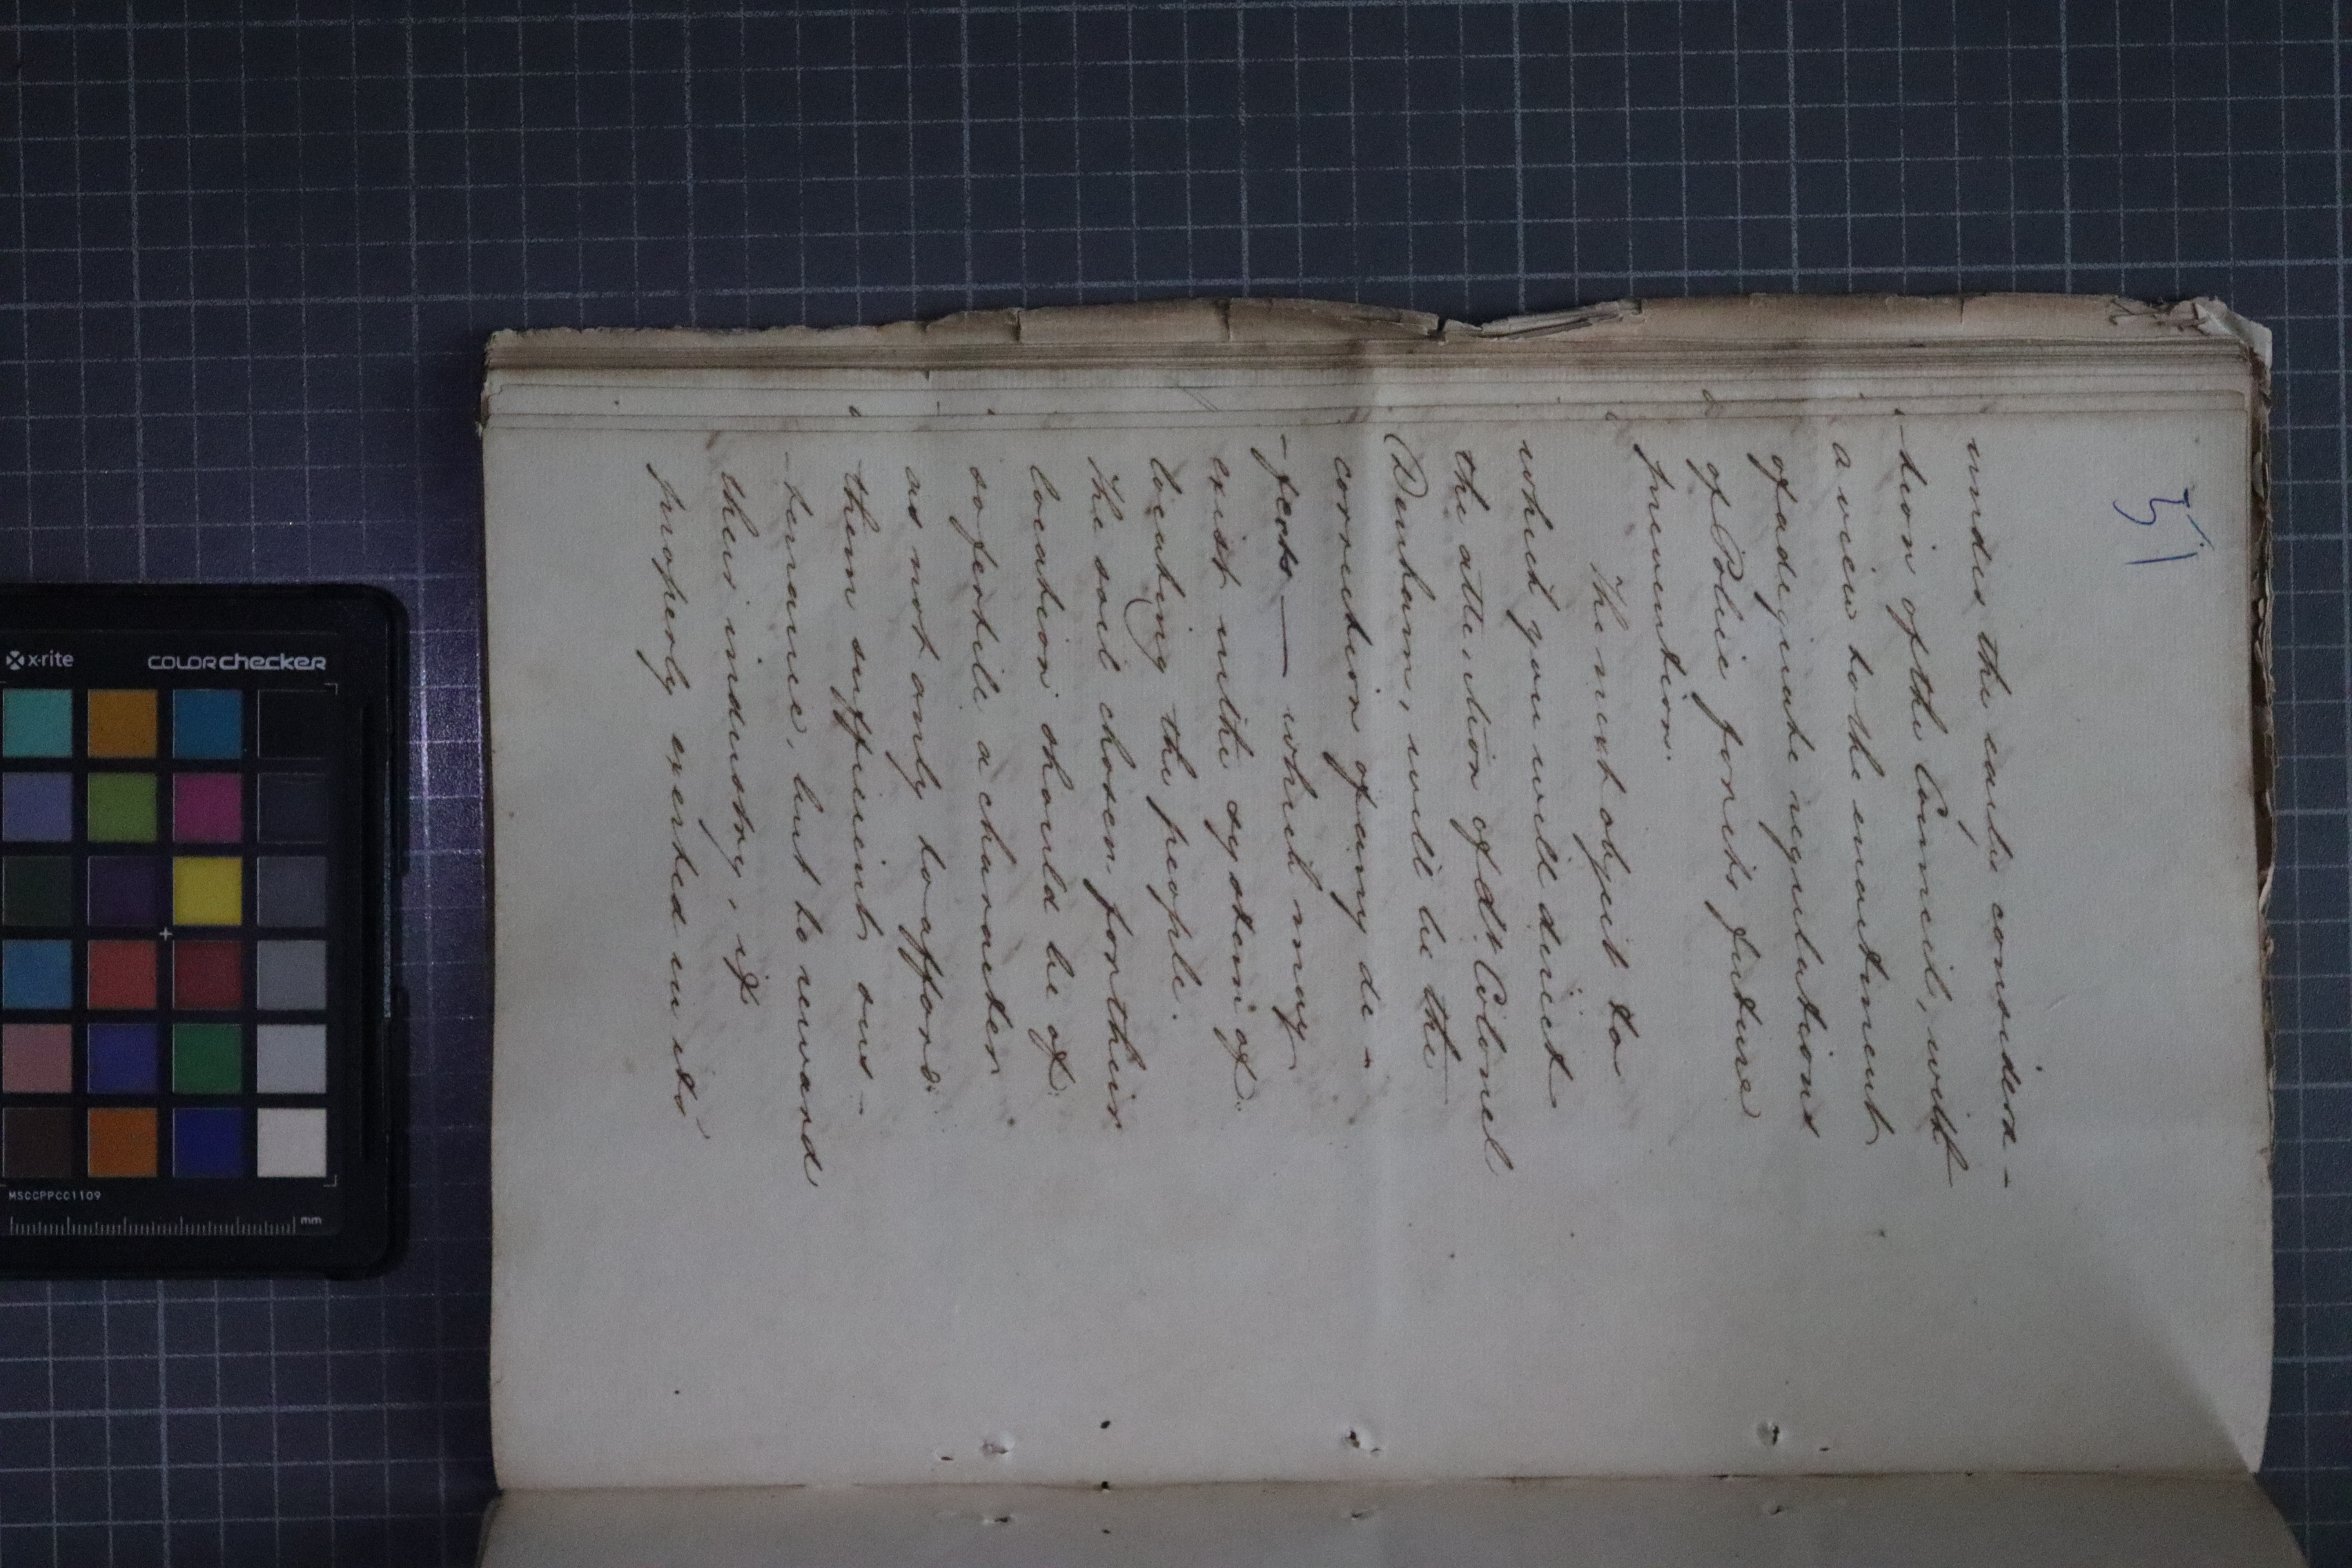 51
under the early consider-
-tion of the Council, with
a view to the enactment
of adequate regulations
of Police for its future
prevention.
The next object to
which you will direct
the attention of Lt Colonel
Denham, will be the
correction of any de-
-fects — which may
exist in the system of
locating the people.
The soil chosen for their
location should be of
so fertile a character
as not only to afford
them sufficient sus-
-tenance, but to reward
their industry, if
properly exerted in its
x-rite
COLORchecker
MSCCPPCC1109
mm